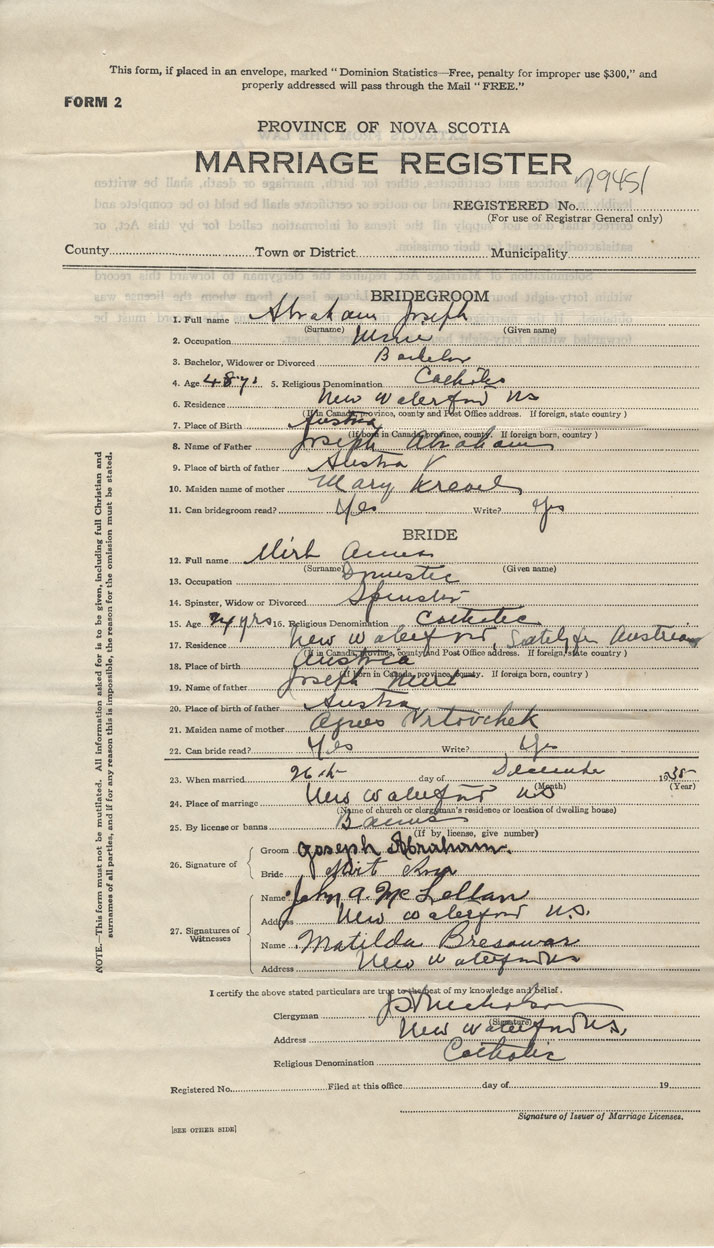 This form, if placed in an envelope, marked "Dominion Statistics—Free, penalty for improper use $300," and
properly addressed will pass through the Mail "FREE."
FORM 2
PROVINCE OF NOVA SCOTIA
MARRIAGE REGISTER
79451
REGISTERED No.
(For use of Registrar General only)
County Town or District Municipality
BRIDEGROOM
1. Full name Abraham Joseph
(Surname) (Given name)
2. Occupation
3. Bachelor, Widower or Divorced Bachelor
4. Age 48 yrs 5. Religious Denomination Catholic
6. Residence New Waterford NS
(If in Canada, province, county and Post Office address. If foreign, state country)
7. Place of Birth Austria
(If born in Canada, province, county. If foreign born, country)
8. Name of Father Joseph Abraham
9. Place of birth of father Austria
10. Maiden name of mother Mary
11. Can bridegroom read? Yes Write? Yes
BRIDE
12. Full name Mirt Anna
(Surname) (Given name)
13. Occupation Domestic
14. Spinster, Widow or Divorced Spinster
15. Age yrs 16. Religious Denomination Catholic
17. Residence New Waterford, Austria
(If in Canada, province, county and Post Office address. If foreign, state country)
18. Place of birth Austria
(If born in Canada, province, county. If foreign born, country)
19. Name of father Joseph Mirt
20. Place of birth of father Austria
21. Maiden name of mother Agnes Vrtovchek
22. Can bride read? Yes Write? Yes
23. When married 26th day of December
(Month) (Year)
24. Place of marriage New Waterford NS
(Name of church or clergyman's residence or location of dwelling house)
25. By license or banns Banns
(If by license, give number)
26. Signature of
Groom Joseph Abraham.
Bride Mirt Ana
27. Signatures of Witnesses
Name John A. McLellan
Address New Waterford N.S.
Name Matilda
Address New Waterford NS
I certify the above stated particulars are true to the best of my knowledge and belief.
Clergyman Nicholson
(Signature)
Address New Waterford N.S.
Religious Denomination Catholic
Registered No. Filed at this office day of 19
Signature of Issuer of Marriage Licenses.
[SEE OTHER SIDE]
NOTE.—This form must not be mutilated. All information asked for is to be given, including full Christian and
surnames of all parties, and if for any reason this is impossible, the reason for the omission must be stated.